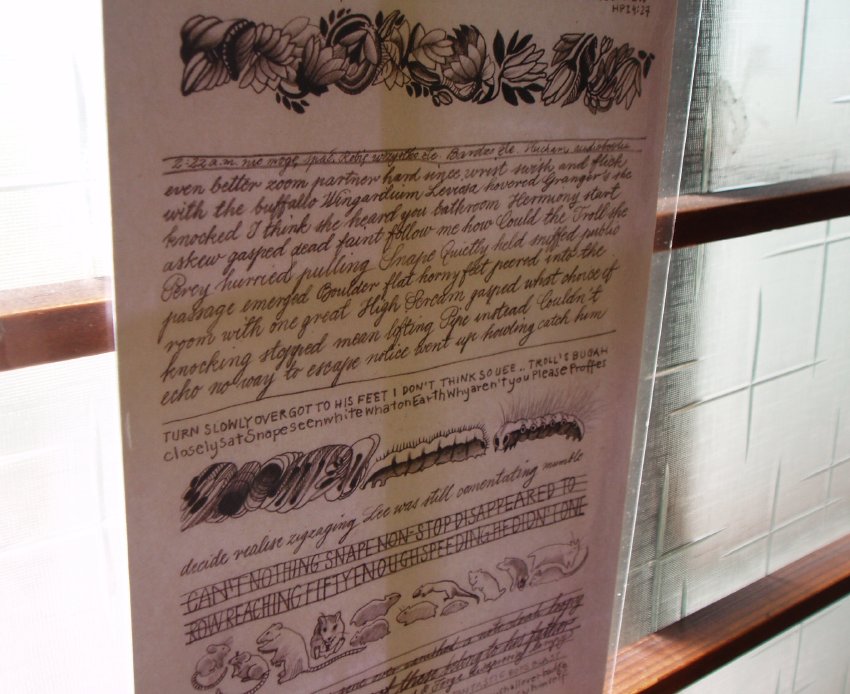 HP 14:37
2:22 a.m. nie mogę spać. źle. Bardzo źle. Słucham audiobooka
even better zoom partner hard since wrist swish and flick
with the buffallo Wingardium Leviosa hovered Granger's she
knocked I think she heard you bathroom Hermiony start
askew gasped dead faint follow me how Could the Troll she
Percy hurried pulling Snape Quietly held sniffed public
passage emerged Boulder flat horny feet peered into the
room with one great High Scream gasped what choice of
knocking stopped mean lifting Pipe instead Couldn't
echo no way to escape notice went up howling catch him
TURN SLOWLY OVER GOT TO HIS FEET I DON'T THINK SO UEE.. TROLL'S BUGAH
closely sat Snape seen white What on Earth Why aren't you Please Proffes
decide realise zigzaging Lee was still comentating mumble
CAN'T NOTHING SNAPE NON-STOP DISAPPEARED TO
ROW REACHING FIFTY ENOUGH SPEEDING HE DIDN'T ONE
vanished a